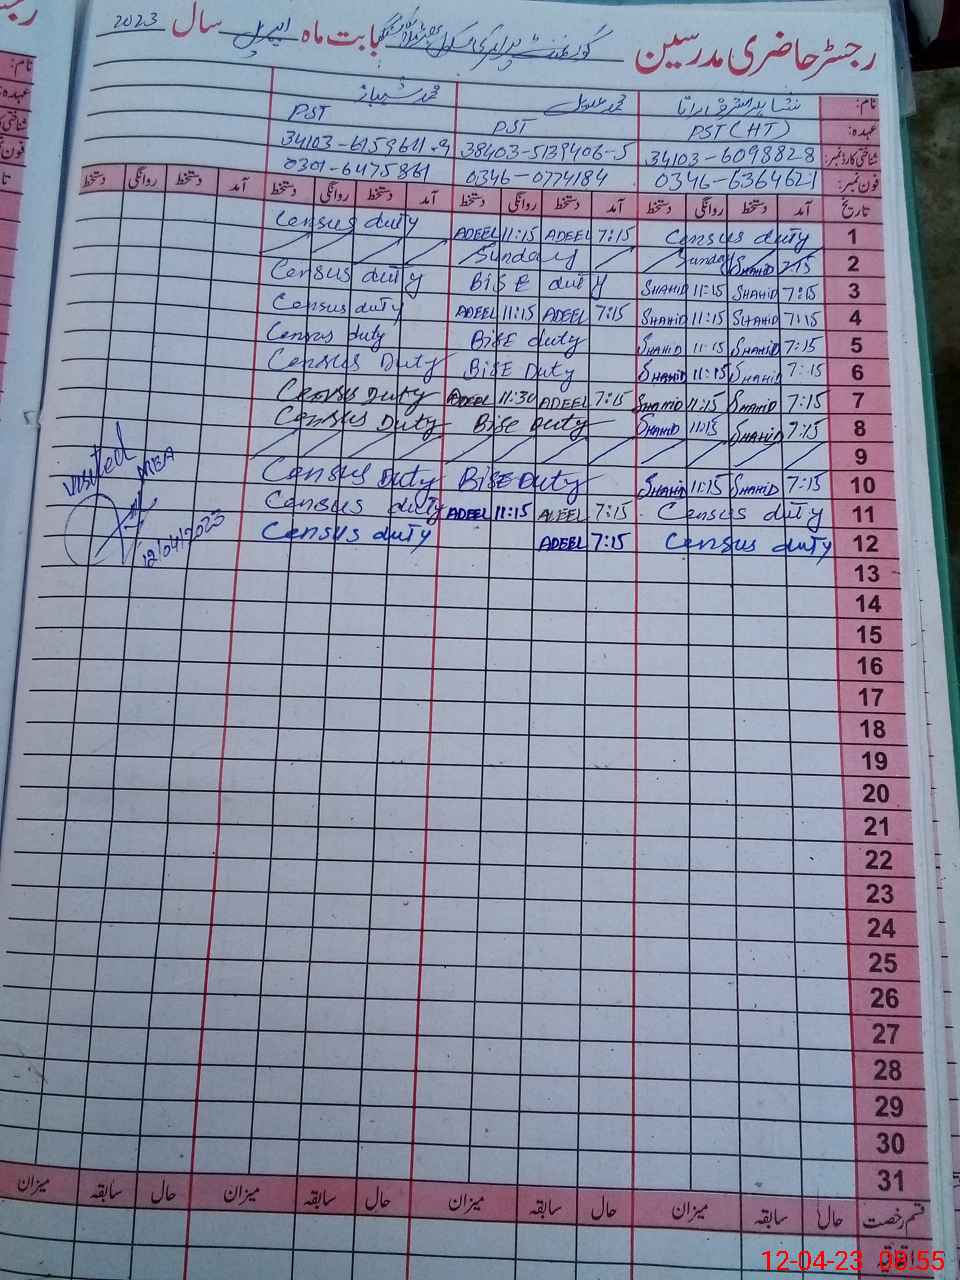 رجسٹر حاضری مدرسین گورنمنٹ پرائمری سکول بابت ماہ اپریل سال 2023
نام: شاہد اشرف رانا محمد عدیل محمد شہباز
عہدہ: PST (HT) PST PST
شناختی کارڈ نمبر: 34103-6098828 38403-5139406-5 34103-6159611-9
فون نمبر: 0346-6364621 0346-0774184 0301-6475861
تاریخ آمد دستخط روانگی دستخط آمد دستخط روانگی دستخط آمد دستخط روانگی دستخط آمد دستخط روانگی دستخط
1 Census duty 7:15 ADEEL 11:15 ADEEL Census duty
2 7:15 SHAHID Sunday Sunday
3 7:15 SHAHID 11:15 SHAHID BISE duty Census duty
4 7:15 SHAHID 11:15 SHAHID 7:15 ADEEL 11:15 ADEEL Census duty
5 7:15 SHAHID 11:15 SHAHID BISE duty Census duty
6 7:15 SHAHID 11:15 SHAHID BISE Duty Census Duty
7 7:15 SHAHID 11:15 SHAHID 7:15 ADEEL 11:30 ADEEL Census Duty
8 7:15 SHAHID 11:15 SHAHID Bise Duty Census Duty
9
10 7:15 SHAHID 11:15 SHAHID BISE Duty Census Duty
11 Census duty 7:15 ADEEL 11:15 ADEEL Census duty
12 Census duty 7:15 ADEEL Census duty
visited
MEA
12/04/2023
13
14
15
16
17
18
19
20
21
22
23
24
25
26
27
28
29
30
31
قسم رخصت حال سابقہ میزان حال سابقہ میزان حال سابقہ میزان حال سابقہ میزان
12-04-23